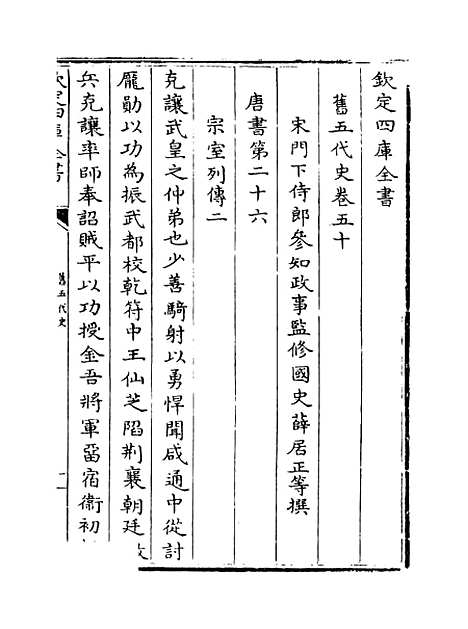 欽定四庫全書
舊五代史卷五十
宋門下侍郎參知政事監修國史薛居正等撰
唐書第二十六
宗室列傳二
克讓武皇之仲弟也少善騎射以勇悍聞咸通中從討
龐勛以功為振武都校乾符中王仙芝陷荆襄朝廷
兵克讓率師奉詔賊平以功授金吾將軍畱宿衛初
欽定四庫全書
舊五代史